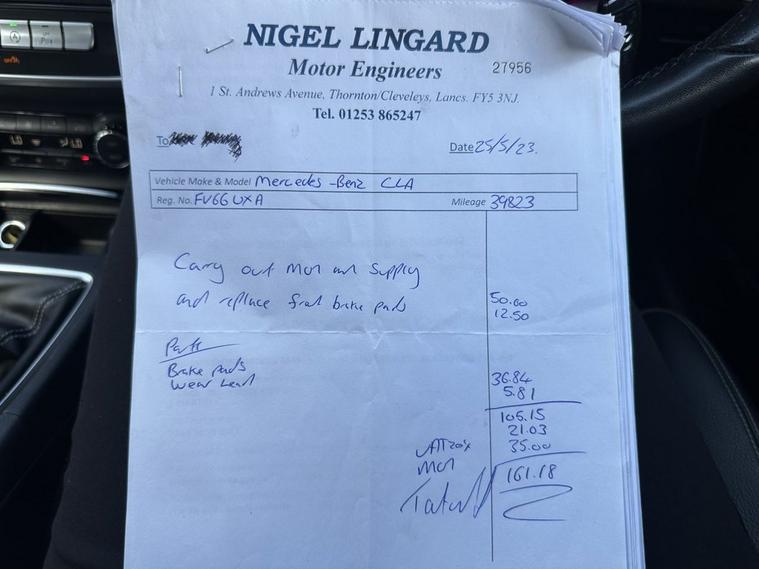 NIGEL LINGARD
Motor Engineers
27956
1 St. Andrews Avenue, Thornton/Cleveleys, Lancs. FY5 3NJ.
Tel. 01253 865247
To
Date 25/5/23.
Vehicle Make & Model Mercedes-Benz CLA
Reg. No. FV66 UXA Mileage 39823
Carry out MOT and supply
and replace front brake pads 50.00
12.50
Parts
Brake Pads 36.84
Wear Lead 5.81
105.15
VAT 20% 21.03
MOT 35.00
Total 161.18